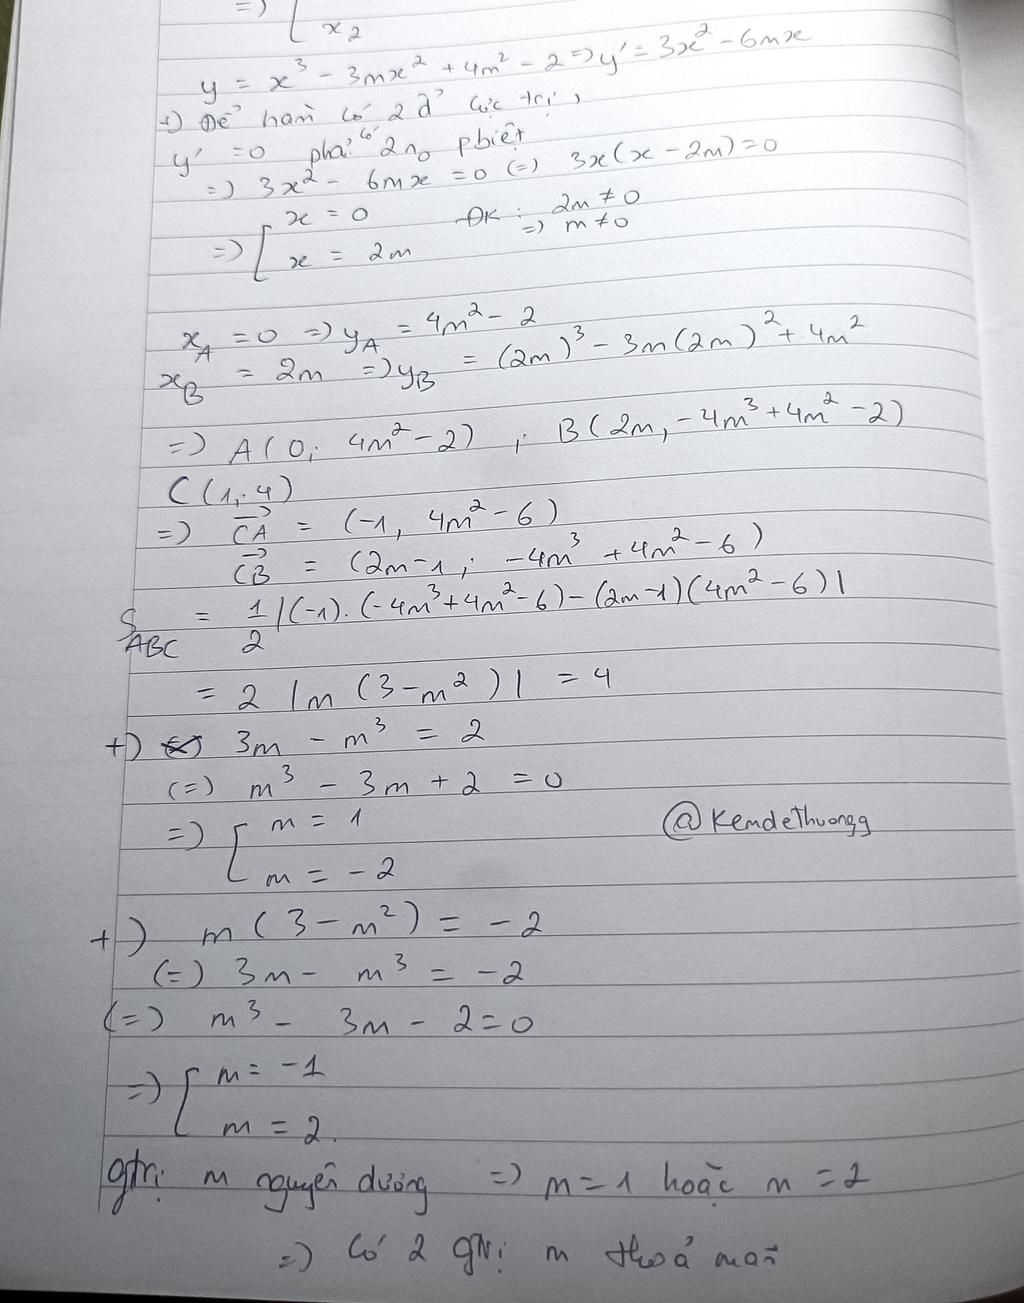 =) [
x2
y = x³ - 3mx² + 4m² - 2 => y' = 3x² - 6mx
+) Để hàm có 2 đ' cực trị,
y' = 0 phải có 2 n0 pbiệt
=) 3x² - 6mx = 0 (=) 3x(x - 2m) = 0
=) [ x = 0 ĐK : 2m ≠ 0
x = 2m =) m ≠ 0
x_A = 0 => y_A = 4m² - 2
x_B = 2m => y_B = (2m)³ - 3m(2m)² + 4m²
=) A(0; 4m² - 2) , B(2m, -4m³ + 4m² - 2)
C(1; 4)
=) CA→ = (-1, 4m² - 6)
CB→ = (2m - 1; -4m³ + 4m² - 6)
S_ABC = 1/2 |(-1).(-4m³ + 4m² - 6) - (2m - 1)(4m² - 6)|
= 2 |m (3 - m²)| = 4
+) 3m - m³ = 2
(=) m³ - 3m + 2 = 0
=) [ m = 1
m = -2
@Kemdethuongg
+) m (3 - m²) = -2
(=) 3m - m³ = -2
(=) m³ - 3m - 2 = 0
=) [ m = -1
m = 2.
gtrị m nguyên dương =) m = 1 hoặc m = 2
=) Có 2 gtrị m thoả mãn